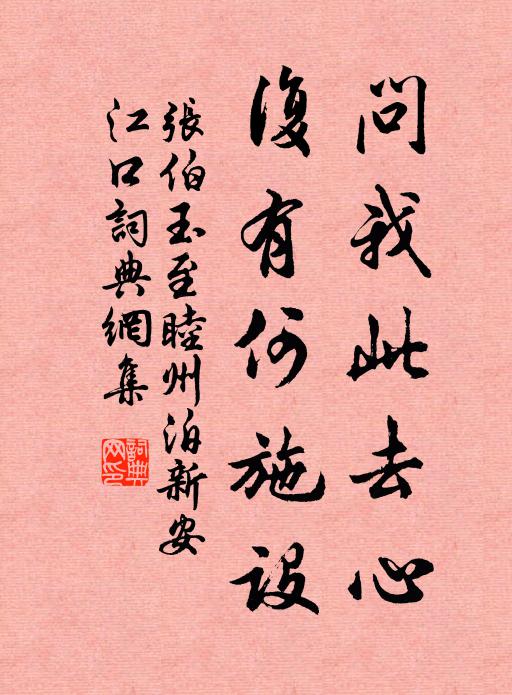 問我此去心
復有何施設
張伯玉至睦州泊新安
江口詞典網集
詞典
网印